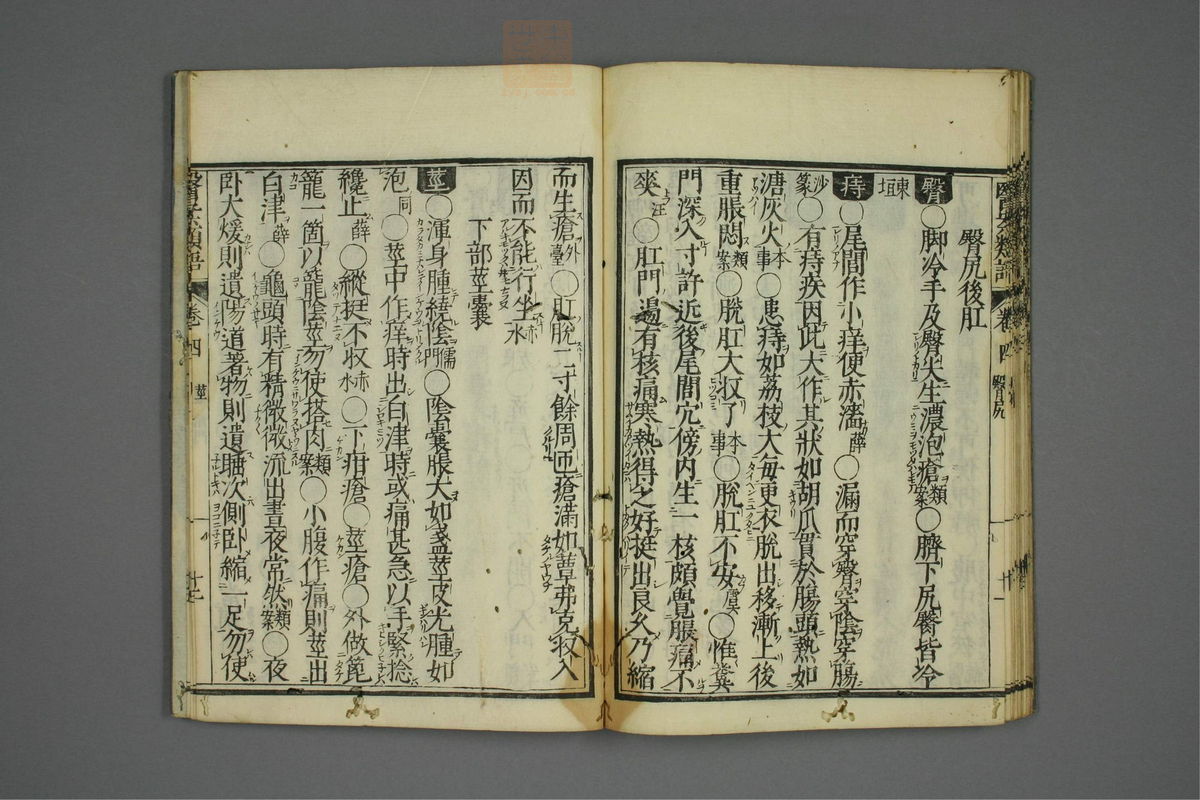 臀尻後肛
臀○脚冷手及臀尖生濃泡瘡類案○臍下尻臀皆冷
東垣
痔○尾閭作小痒便赤濇薛○漏而穿臀穿陰穿腸
沙篆○有痔疾因此大作其狀如胡瓜貫於腸頭熱如
溏灰火本事○患痔如茘枝大每更衣脫出移漸上後
重脹悶類案○脫肛大收了本事○脫肛不安虞○惟糞
門深入寸許近後尾閭穴傍內生一核頗覺脹痛不
爽汪○肛門邊有核痛寒熱得之好挺出良久乃縮
而生瘡外臺○肛脫二寸餘周匝瘡滿如蕈弗克收入
因而不能行坐赤水
下部莖囊
莖○渾身腫繞陰儒門○陰囊脹大如盞莖皮光腫如
泡同○莖中作痒時出白津時或痛甚急以手緊捻
纔止薛○縱挺不收赤水○下疳瘡○莖瘡○外做箆
籠一箇以籠陰莖勿使搭肉類案○小腹作痛則莖出
白津薛○龜頭時有精微微流出晝夜常然類案○夜
臥大煖則遺陽道著物則遺睡次側臥縮一足勿使
醫案類語 卷四 臀尻
卷四 莖 十二